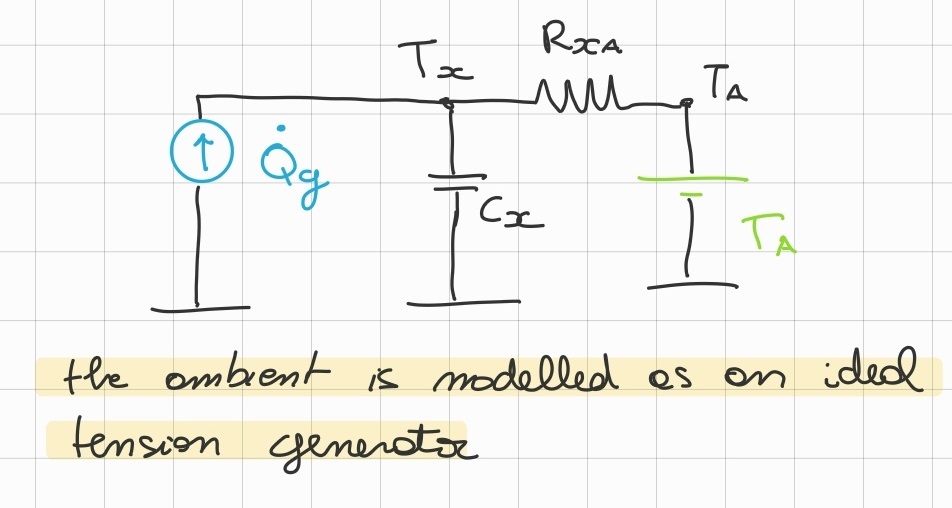 Tx RxA TA
Q̇g
Cx
TA
the ambient is modelled as an ideal
tension generator